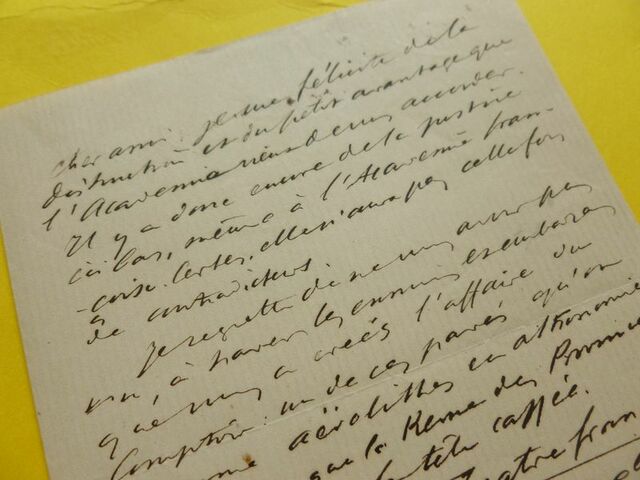 cher ami. je vous félicite de la
distinction et du petit avantage que
l'Académie vient de vous accorder.
Il y a donc encore de la justice
ici bas, même à l'Académie fran-
-çaise. Certes, elle n'aura pas cette fois
de contradicteurs.
Je regrette de ne vous avoir pas
vu, à travers les ennuis et embarras
que nous a créés l'affaire du
Comptoir : un de ces pavés qu'on
nomme aërolithes en astronomie
que la Revue des Provinces
la tête cassée.
fran